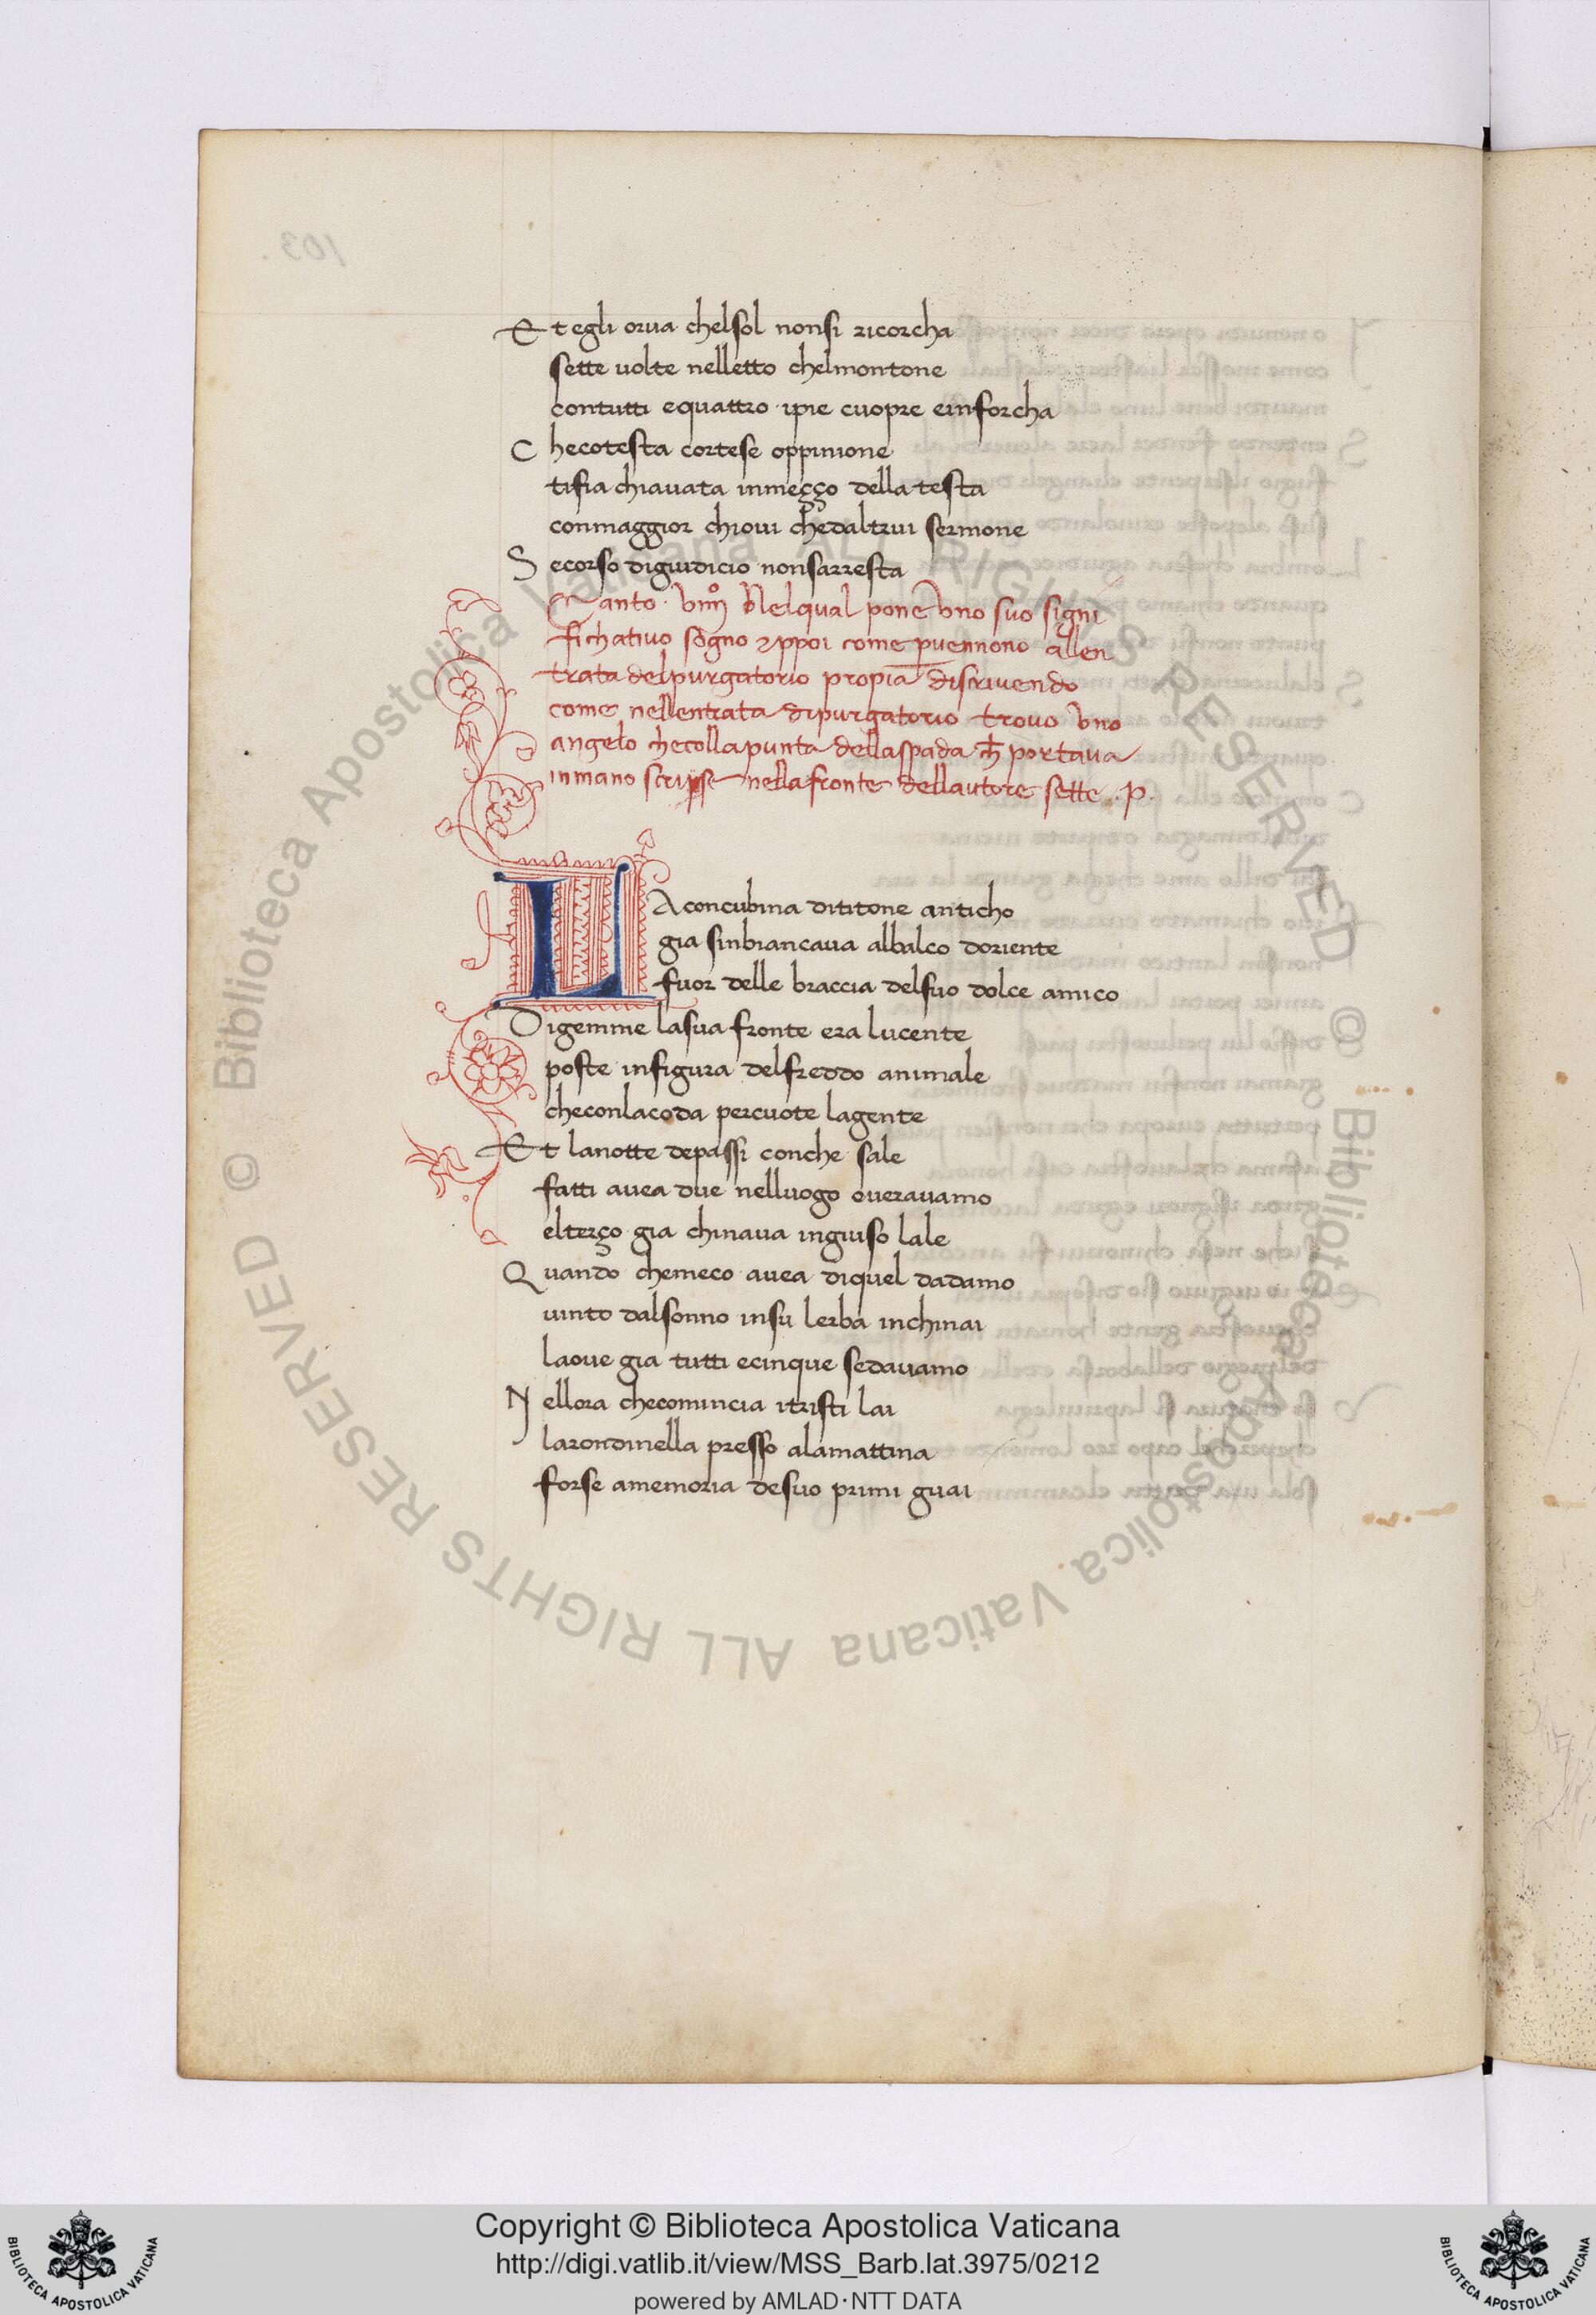 103.
Et egli orva chelsol nonsi ricorcha
sette uolte nelletto chelmontone
contutti equattro ipie cuopre einforcha
C hecotesta cortese oppinione
tisia chiauata inmeçço della testa
conmaggior chioui chedaltrui sermone
S ecorso digiudicio nonsarresta
Canto · VIIIIº Nelqual pone vno suo signi
fichatiuo sogno Appoi come puennono allen
trata delpurgatorio propia discriuendo
come nellentrata dipurgatorio trouo vno
angelo checolla punta dellaspada ch portaua
inmano scripse nella fronte dellautore sette .p.
LA concubina dititone anticho
gia sinbiancaua albalco doriente
fuor delle braccia delsuo dolce amico
Digemme lasua fronte era lucente
poste infigura delfreddo animale
checonlacoda percuote lagente
Et lanotte depassi conche sale
fatti auea due nelluogo oueravamo
elterço gia chinaua ingiuso lale
Quando chemeco auea diquel dadamo
uinto dalsonno insu lerba inchinai
laoue gia tutti ecinque sedauamo
N ellora checomincia itristi lai
larondinella presso alamattina
forse amemoria desuo primi guai
© Biblioteca Apostolica Vaticana ALL RIGHTS RESERVED © Biblioteca Apostolica Vaticana ALL RIGHTS RESERVED
Copyright © Biblioteca Apostolica Vaticana
http://digi.vatlib.it/view/MSS_Barb.lat.3975/0212
powered by AMLAD·NTT DATA
BIBLIOTECA APOSTOLICA VATICANA
BIBLIOTECA APOSTOLICA VATICANA